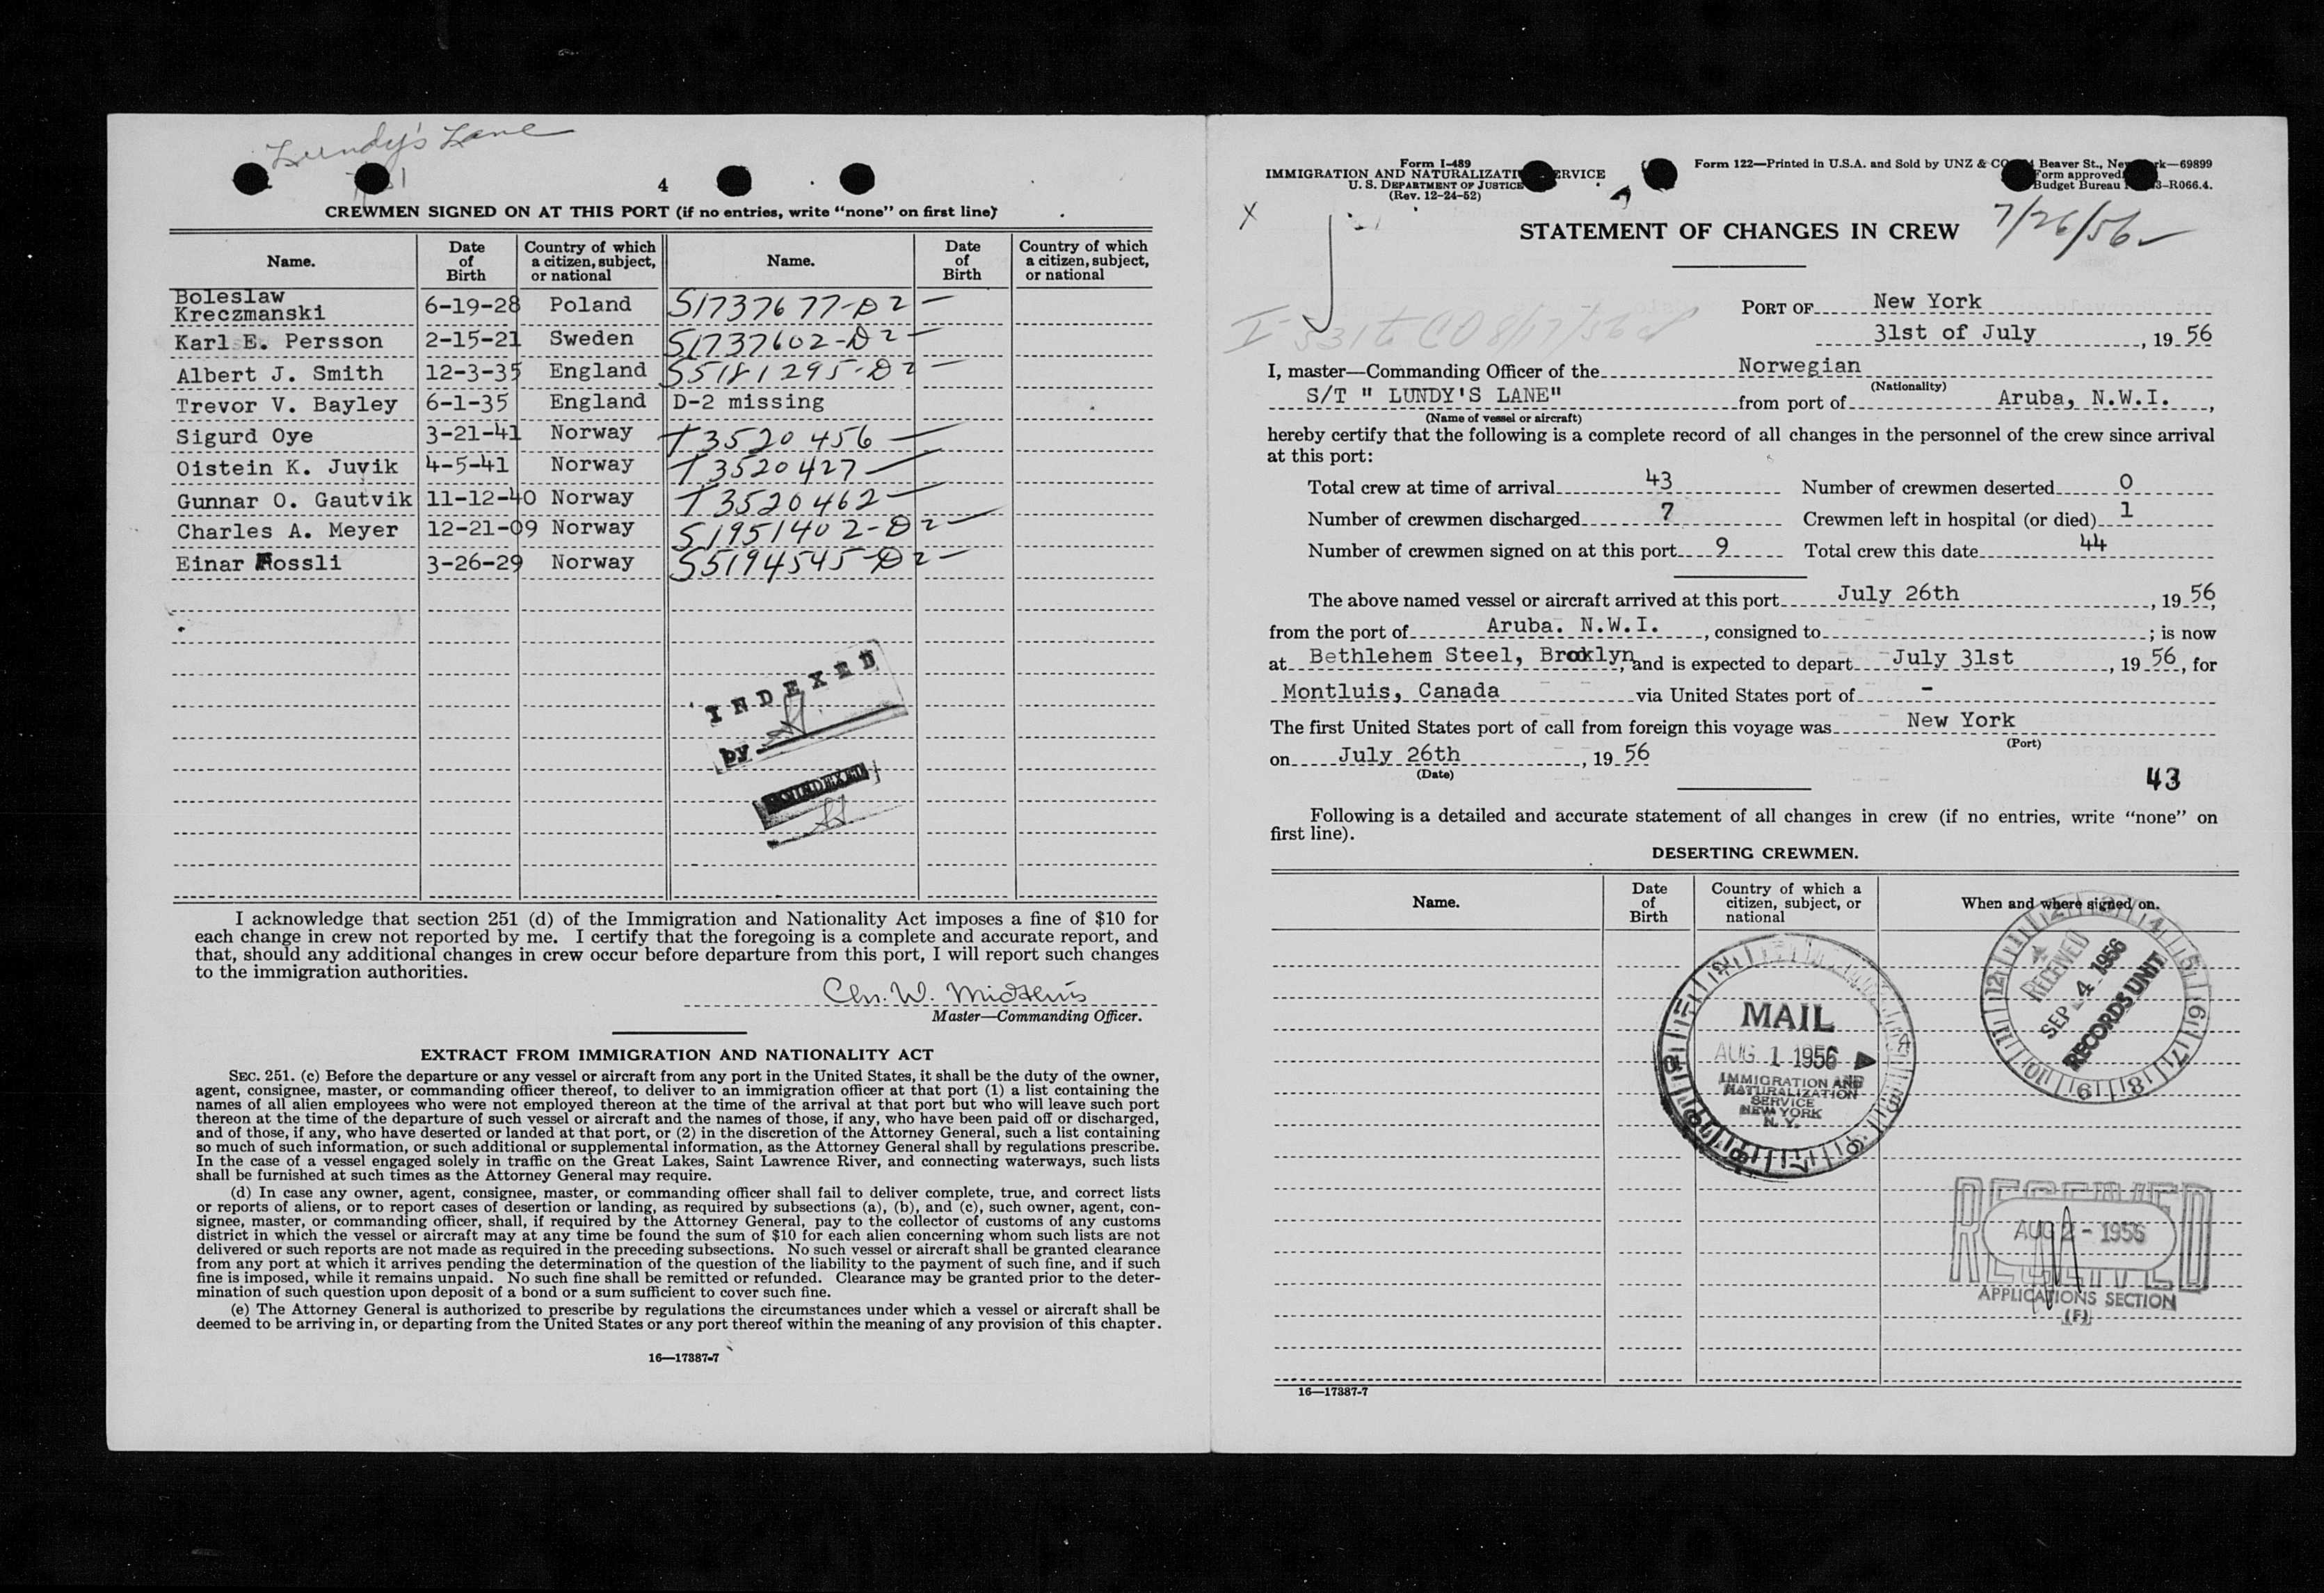 Lundy's Lane
4
CREWMEN SIGNED ON AT THIS PORT (if no entries, write “none” on first line)
Name. Date of Birth Country of which a citizen, subject, or national Name. Date of Birth Country of which a citizen, subject, or national
Boleslaw
Kreczmanski 6-19-28 Poland S1737677-D2 —
Karl E. Persson 2-15-21 Sweden S1737602-D2 —
Albert J. Smith 12-3-35 England S5181295-D2 —
Trevor V. Bayley 6-1-35 England D-2 missing
Sigurd Oye 3-21-41 Norway T3520456 —
Oistein K. Juvik 4-5-41 Norway T3520427 —
Gunnar O. Gautvik 11-12-40 Norway T3520462 —
Charles A. Meyer 12-21-09 Norway S1951402-D2 —
Einar Fossli 3-26-29 Norway S5194545-D2 —
INDEXED
by
I acknowledge that section 251 (d) of the Immigration and Nationality Act imposes a fine of $10 for
each change in crew not reported by me. I certify that the foregoing is a complete and accurate report, and
that, should any additional changes in crew occur before departure from this port, I will report such changes
to the immigration authorities.
Chr. W. Midthus
Master—Commanding Officer.
EXTRACT FROM IMMIGRATION AND NATIONALITY ACT
SEC. 251. (c) Before the departure or any vessel or aircraft from any port in the United States, it shall be the duty of the owner,
agent, consignee, master, or commanding officer thereof, to deliver to an immigration officer at that port (1) a list containing the
names of all alien employees who were not employed thereon at the time of the arrival at that port but who will leave such port
thereon at the time of the departure of such vessel or aircraft and the names of those, if any, who have been paid off or discharged,
and of those, if any, who have deserted or landed at that port, or (2) in the discretion of the Attorney General, such a list containing
so much of such information, or such additional or supplemental information, as the Attorney General shall by regulations prescribe.
In the case of a vessel engaged solely in traffic on the Great Lakes, Saint Lawrence River, and connecting waterways, such lists
shall be furnished at such times as the Attorney General may require.
(d) In case any owner, agent, consignee, master, or commanding officer shall fail to deliver complete, true, and correct lists
or reports of aliens, or to report cases of desertion or landing, as required by subsections (a), (b), and (c), such owner, agent, con-
signee, master, or commanding officer, shall, if required by the Attorney General, pay to the collector of customs of any customs
district in which the vessel or aircraft may at any time be found the sum of $10 for each alien concerning whom such lists are not
delivered or such reports are not made as required in the preceding subsections. No such vessel or aircraft shall be granted clearance
from any port at which it arrives pending the determination of the question of the liability to the payment of such fine, and if such
fine is imposed, while it remains unpaid. No such fine shall be remitted or refunded. Clearance may be granted prior to the deter-
mination of such question upon deposit of a bond or a sum sufficient to cover such fine.
(e) The Attorney General is authorized to prescribe by regulations the circumstances under which a vessel or aircraft shall be
deemed to be arriving in, or departing from the United States or any port thereof within the meaning of any provision of this chapter.
16—17387-7
Form I-489
IMMIGRATION AND NATURALIZATI ERVICE
U. S. DEPARTMENT OF JUSTICE
(Rev. 12-24-52)
Form 122—Printed in U.S.A. and Sold by UNZ & CO Beaver St., Ne rk—69899
Form approved
Budget Bureau 3-R066.4.
X
7/26/56
STATEMENT OF CHANGES IN CREW
PORT OF New York
31st of July, 19 56
I, master—Commanding Officer of the Norwegian
(Nationality)
S/T " LUNDY'S LANE" from port of Aruba, N.W.I.,
(Name of vessel or aircraft)
hereby certify that the following is a complete record of all changes in the personnel of the crew since arrival
at this port:
Total crew at time of arrival 43 Number of crewmen deserted 0
Number of crewmen discharged 7 Crewmen left in hospital (or died) 1
Number of crewmen signed on at this port 9 Total crew this date 44
The above named vessel or aircraft arrived at this port July 26th, 19 56,
from the port of Aruba. N.W.I., consigned to ; is now
at Bethlehem Steel, Broklyn, and is expected to depart July 31st, 19 56, for
Montluis, Canada via United States port of -
The first United States port of call from foreign this voyage was New York
(Port)
on July 26th, 19 56
(Date)
43
Following is a detailed and accurate statement of all changes in crew (if no entries, write “none” on
first line).
DESERTING CREWMEN.
Name. Date of Birth Country of which a citizen, subject, or national When and where signed on.
RECEIVED
SEP 4 1956
RECORDS UNIT
MAIL
AUG 1 1956
IMMIGRATION AND
NATURALIZATION
SERVICE
NEW YORK
N. Y.
RECEIVED
AUG 2 - 1956
APPLICATIONS SECTION
(F)
16—17387-7